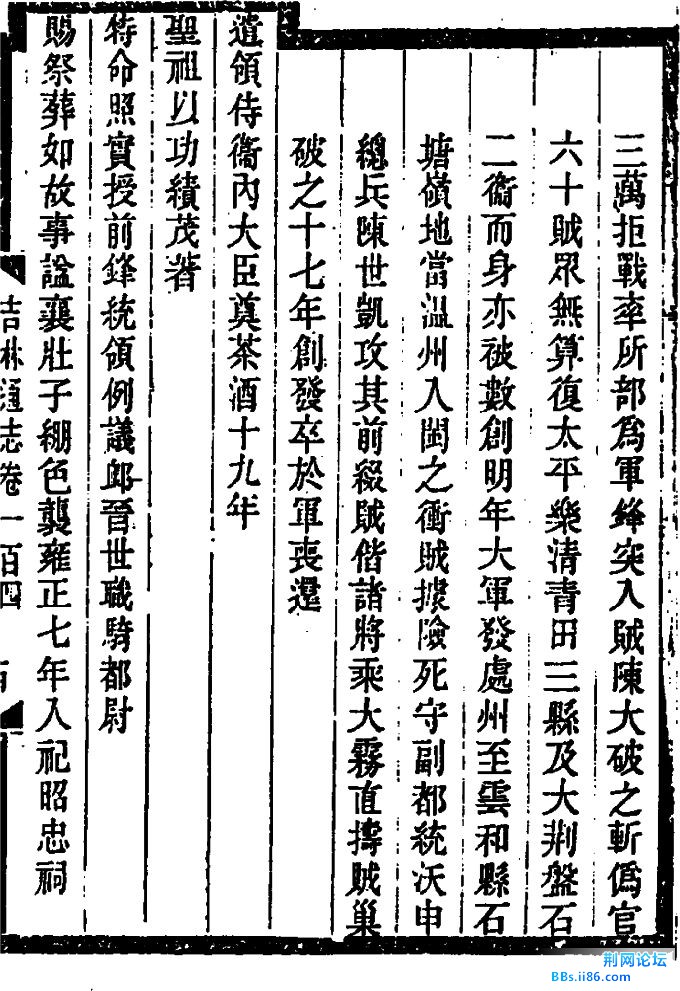 三萬拒戰率所部爲軍鋒突入賊陳大破之斬僞官
六十賊眾無算復太平樂清青田三縣及大荆盤石
二衞而身亦被數創明年大軍發處州至雲和縣石
塘嶺地當溫州入閩之衝賊據險死守副都統沃申
總兵陳世凱攻其前綴賊偕諸將乘大霧直擣賊巢
破之十七年創發卒於軍喪還
遣領侍衞內大臣奠茶酒十九年
聖祖以功績茂著
特命照實授前鋒統領例議卹晉世職騎都尉
賜祭葬如故事諡襄壯子綳色襲雍正七年入祀昭忠祠
吉林通志卷一百四
荆网论坛
BBs.ii86.com